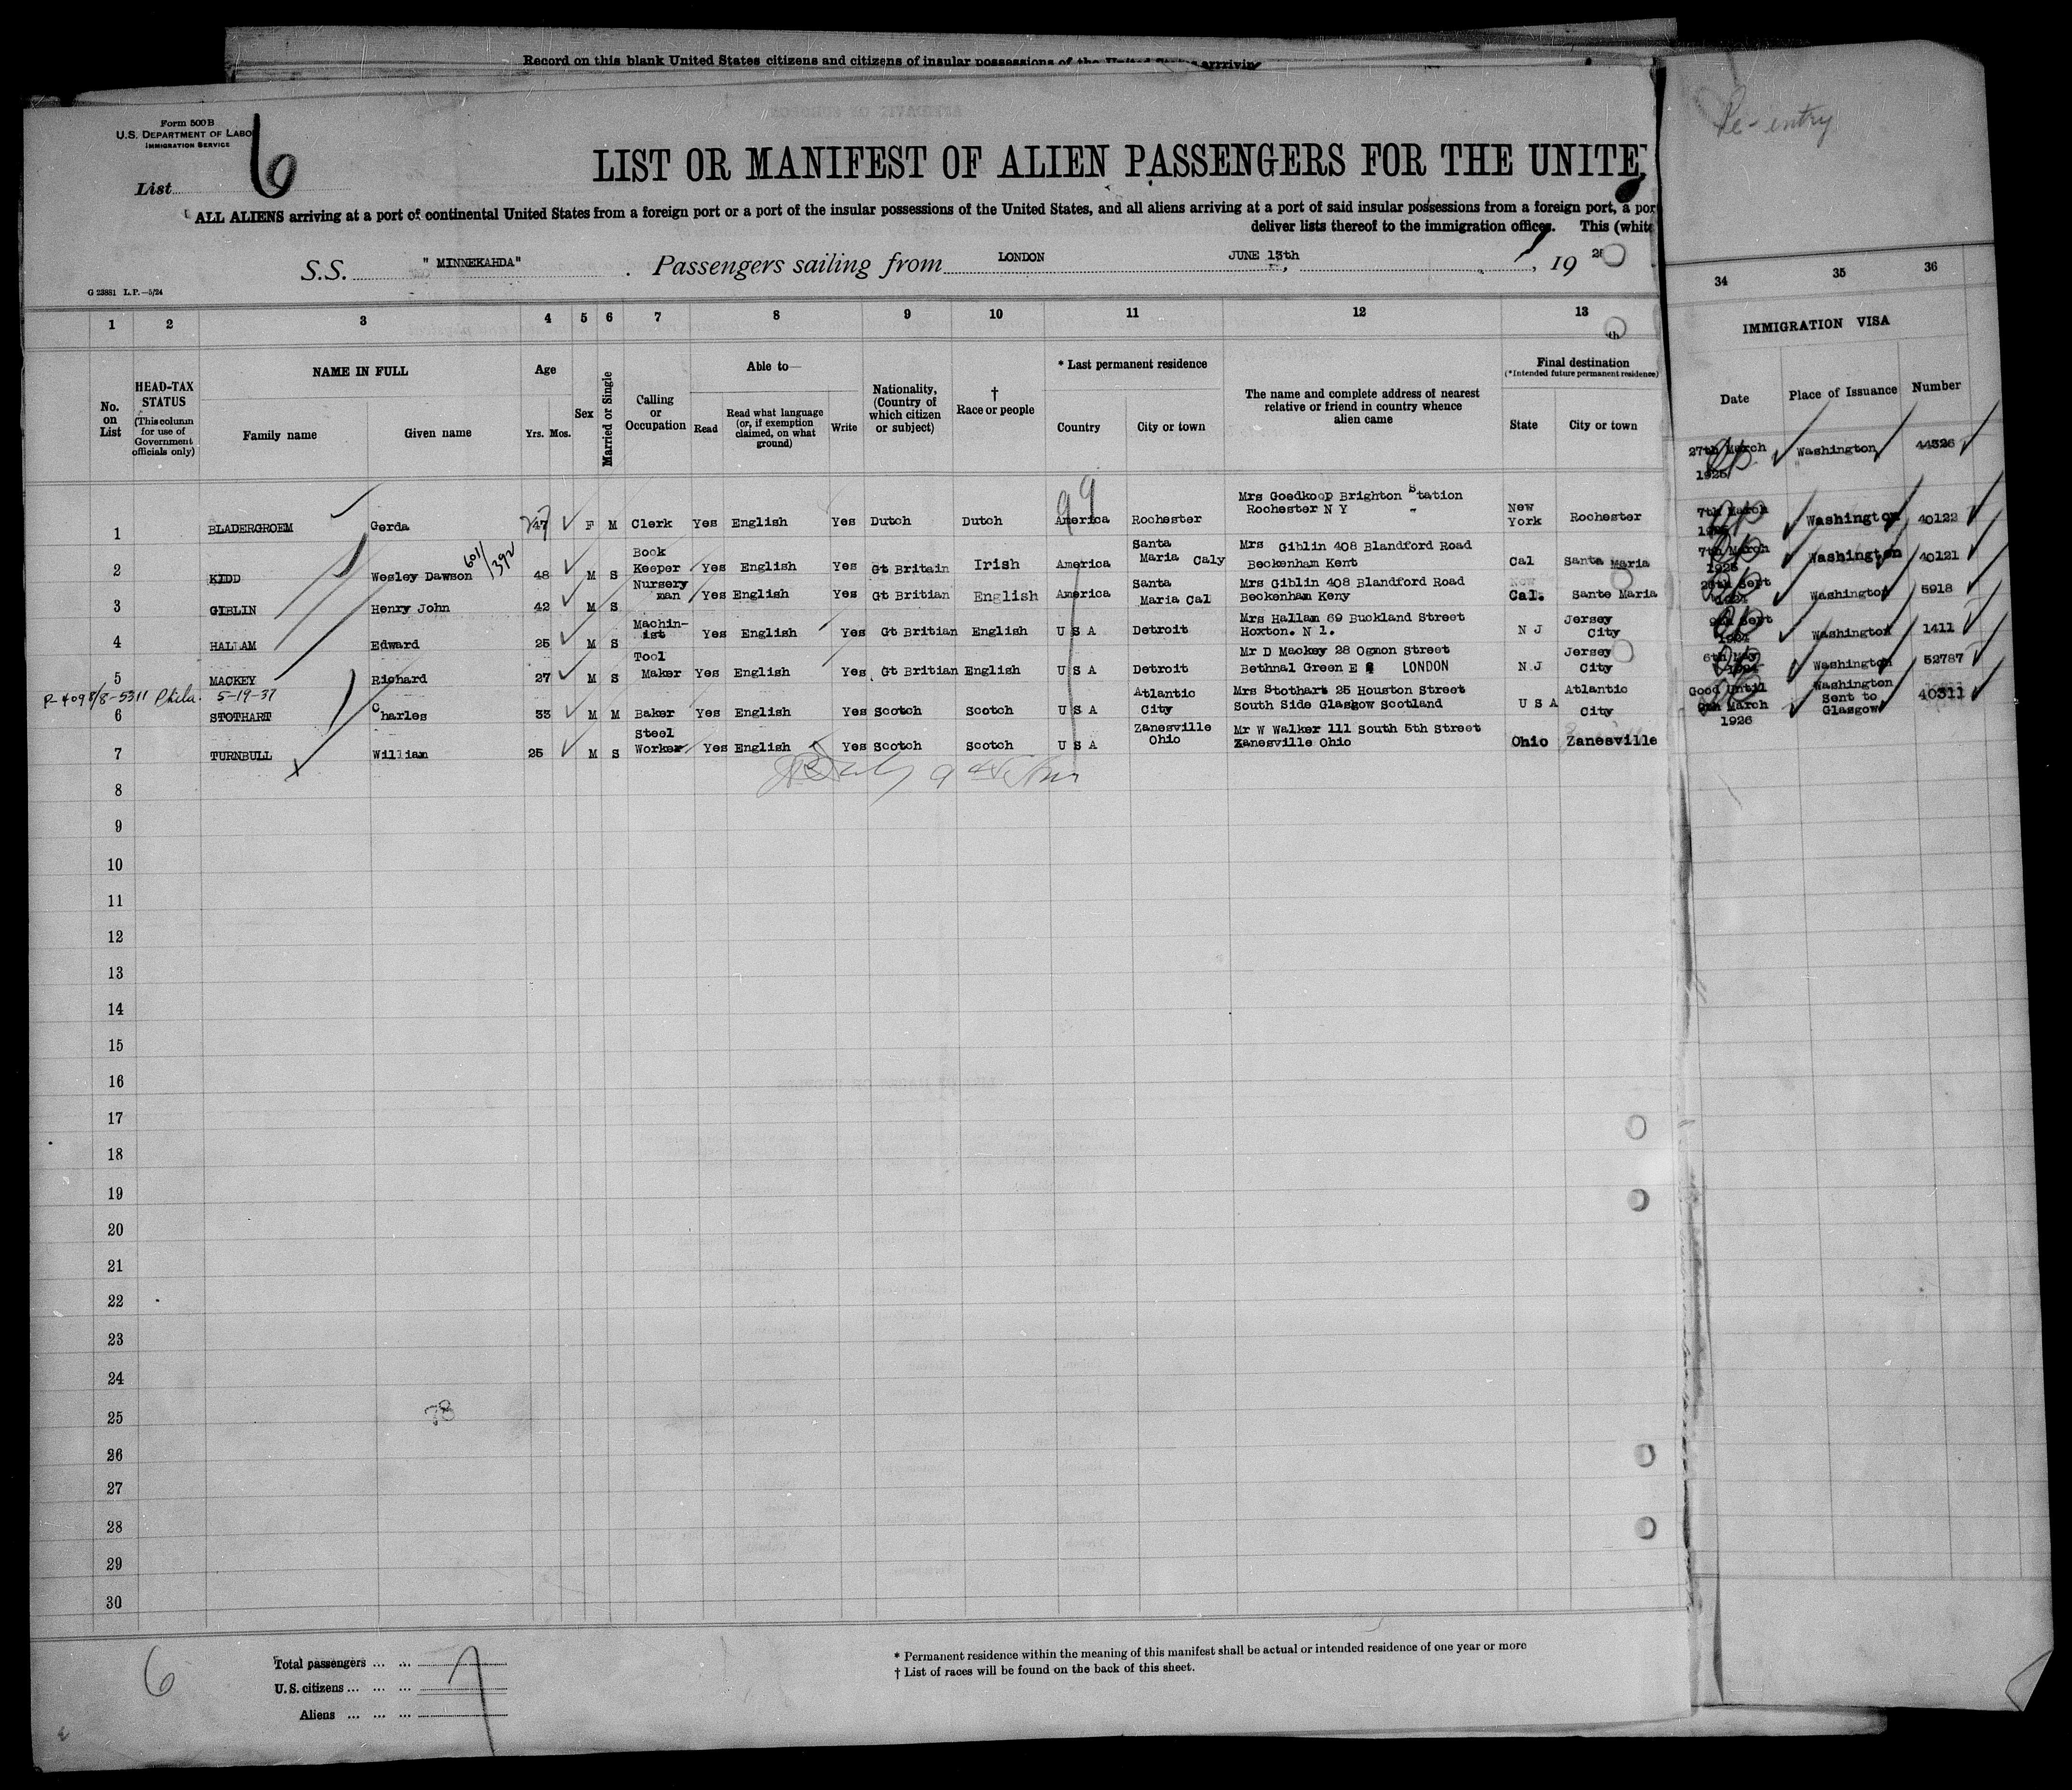 Record on this blank United States citizens and citizens of insular possessions of the United States arrriving
Re-entry
Form 500B
U.S. DEPARTMENT OF LABO
IMMIGRATION SERVICE
List 6
LIST OR MANIFEST OF ALIEN PASSENGERS FOR THE UNITE
ALL ALIENS arriving at a port of continental United States from a foreign port or a port of the insular possessions of the United States, and all aliens arriving at a port of said insular possessions from a foreign port, a por
deliver lists thereof to the immigration officer. This (white
S.S. "MINNEKAHDA". Passengers sailing from LONDON JUNE 13th, 19 25
G 23881 L.P.—5/24
1 2 3 4 5 6 7 8 9 10 11 12 13 34 35 36
No. on List
HEAD-TAX STATUS (This column for use of Government officials only)
NAME IN FULL
Family name Given name
Age
Yrs. Mos.
Sex
Married or Single
Calling or Occupation
Able to—
Read Read what language (or, if exemption claimed, on what ground) Write
Nationality, (Country of which citizen or subject)
† Race or people
* Last permanent residence
Country City or town
The name and complete address of nearest relative or friend in country whence alien came
Final destination
(*Intended future permanent residence)
State City or town
IMMIGRATION VISA
Date Place of Issuance Number
27th March 1925 Washington 44326
1 BLADERGROEM Gerda 47 F M Clerk Yes English Yes Dutch Dutch America Rochester Mrs Goedkoop Brighton Station Rochester N Y New York Rochester
99
7th March Washington 40122
601/392
2 KIDD Wesley Dawson 48 M S Book Keeper Yes English Yes Gt Britain Irish America Santa Maria Caly Mrs Giblin 408 Blandford Road Beckenham Kent Cal Santa Maria
7th March 1925 Washington 40121
3 GIBLIN Henry John 42 M S Nursery man Yes English Yes Gt Britian English America Santa Maria Cal Mrs Giblin 408 Blandford Road Beckenham Keny Cal. Sante Maria
Sept Washington 5918
4 HALLAM Edward 25 M S Machin-ist Yes English Yes Gt Britian English U S A Detroit Mrs Hallam 69 Buckland Street Hoxton. N 1. N J Jersey City
Sept 1924 Washington 1411
5 MACKEY Richard 27 M S Tool Maker Yes English Yes Gt Britian English U S A Detroit Mr D Mackey 28 Ogmon Street Bethnal Green E LONDON N J Jersey City
6th Washington 52787
5-19-37
6 STOTHART Charles 33 M M Baker Yes English Yes Scotch Scotch U S A Atlantic City Mrs Stothart 25 Houston Street South Side Glasgow Scotland U S A Atlantic City
Good Until 9th March 1926 Washington Sent to Glasgow 40311
7 TURNBULL William 25 M S Steel Worker Yes English Yes Scotch Scotch U S A Zanesville Ohio Mr W Walker 111 South 5th Street Zanesville Ohio Ohio Zanesville
8
9
10
11
12
13
14
15
16
17
18
19
20
21
22
23
24
25 78
26
27
28
29
30
6
Total passengers ... ... 7
U.S. citizens ... ... ...
Aliens ... ... ...
* Permanent residence within the meaning of this manifest shall be actual or intended residence of one year or more
† List of races will be found on the back of this sheet.